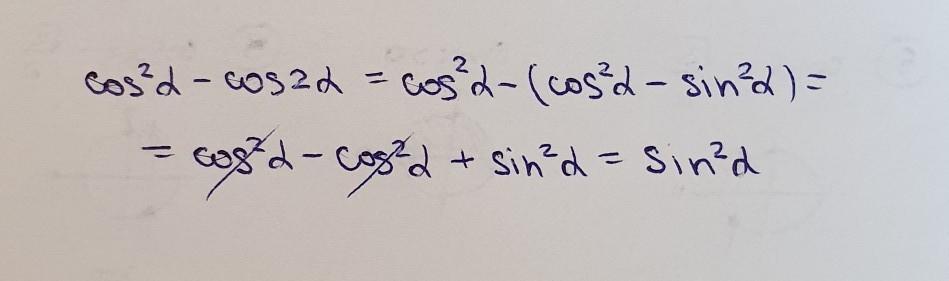 cos²α - cos2α = cos²α - (cos²α - sin²α) =
= cos²α - cos²α + sin²α = sin²α